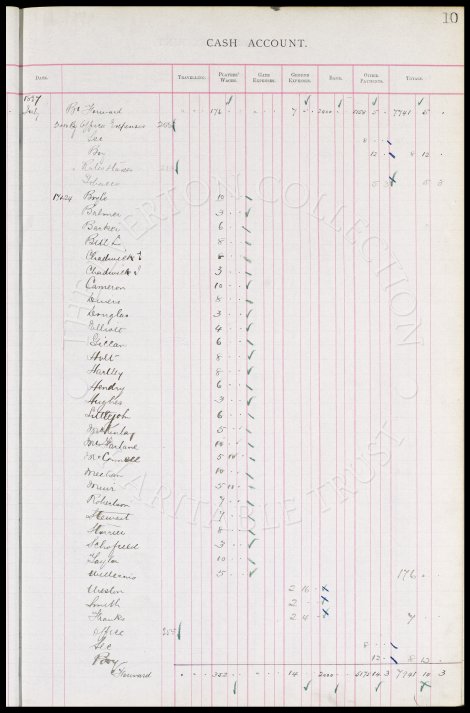 10
CASH ACCOUNT.
DATE. TRAVELLING. PLAYERS' WAGES. GATE EXPENSES. GROUND EXPENSES. BANK. OTHER PAYMENTS. TOTALS.
1897
July Bt Forward 176 7 2000 5 7741 5
Office Expenses
Sec 8
Boy 12 8 12
Tobacco 5 3 5 3
17 & 24 Boyle 10
Balmer 3
Barker 6
Bell L 8
Chadwick E 6
Chadwick A 3
Cameron 10
Divers 8
Douglas 3
Elliott 4
Gillan 6
Holt 8
Hartley 8
Hendry 6
Hughes 3
Littlejohn 6
McKinlay 5
McFarlane 10
McConnell 5 10
Meechan 10
Muir 5 10
Robertson 7
Stewart 7
Storrier 8
Schofield 3
Taylor 10
Williams 5 176
Weston 2 16
Smith 2
Thanks 2 4 7
Office
Sec 8
Boy 12 8 12
Forward 352 14 2000 14 3 10 3
THE EVERTON COLLECTION
CHARITABLE TRUST